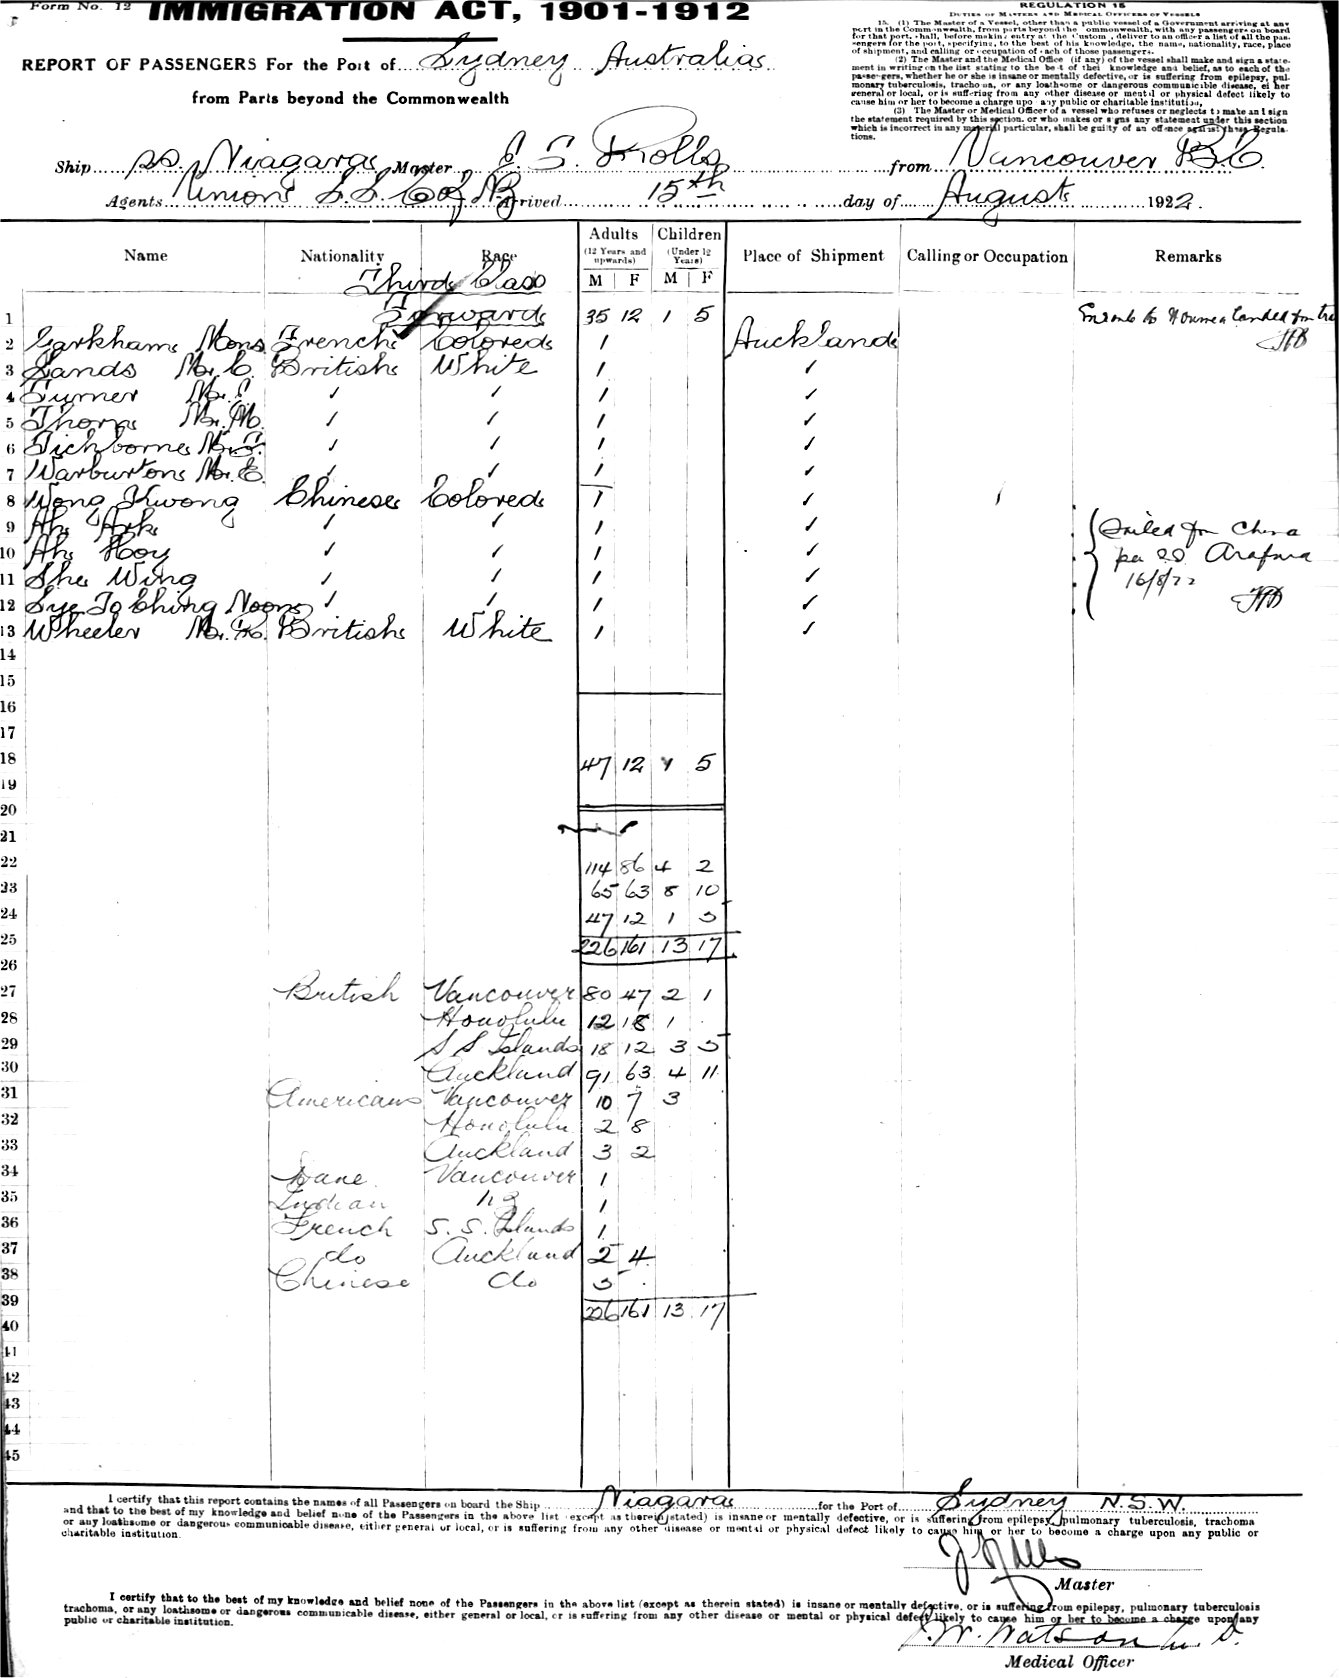 Form No. 12
IMMIGRATION ACT, 1901-1912
REPORT OF PASSENGERS For the Port of Sydney Australia
from Parts beyond the Commonwealth
REGULATION 15
DUTIES OF MASTERS AND MEDICAL OFFICERS OF VESSELS
15. (1) The Master of a Vessel, other than a public vessel of a Government arriving at any
port in the Commonwealth, from parts beyond the ommonwealth, with any passengers on board
for that port, shall, before making entry at the Custom, deliver to an officer a list of all the pas-
sengers for the port, specifying, to the best of his knowledge, the name, nationality, race, place
of shipment, and calling or occupation of each of those passengers.
(2) The Master and the Medical Office (if any) of the vessel shall make and sign a state-
ment in writing on the list stating to the best of their knowledge and belief, as to each of the
passengers, whether he or she is insane or mentally defective, or is suffering from epilepsy, pul-
monary tuberculosis, trachoma, or any loathsome or dangerous communicable disease, either
general or local, or is suffering from any other disease or mental or physical defect likely to
cause him or her to become a charge upon any public or charitable institution.
(3) The Master or Medical Officer of a vessel who refuses or neglects to make and sign
the statement required by this section, or who makes or signs any statement under this section
which is incorrect in any material particular, shall be guilty of an offence against these Regula-
tions.
Ship ss. Niagara Master J. S. Rolls from Vancouver B.C.
Agents Union S.S. Co of NZ Arrived 15th day of August 1922.
Name Nationality Race Adults (12 Years and upwards) M F Children (Under 12 Years) M F Place of Shipment Calling or Occupation Remarks
Third Class
1 Forward 35 12 1 5 Enroute to Noumea landed for
2 Garkham Mons French Colored 1 Auckland
3 Sands Mr. C. British White 1 ✓
4 Turner Mr. ✓ ✓ 1 ✓
5 Thorn Mr. M. ✓ ✓ 1 ✓
6 Tichborne Mr. F. ✓ ✓ 1 ✓
7 Warburton Mr. E. ✓ ✓ 1 ✓
8 Wong Kwong Chinese Colored 1 ✓
9 Ah Ark ✓ ✓ 1 ✓ Sailed for China
10 Ah Hoy ✓ ✓ 1 ✓ per SS Arafura
11 She Wing ✓ ✓ 1 ✓ 16/8/22
12 Sye To Ching Noon ✓ ✓ 1 ✓
13 Wheeler Mr. R. British White 1 ✓
14
15
16
17
18 47 12 1 5
19
20
21
22 114 86 4 2
23 65 63 8 10
24 47 12 1 5
25 226 161 13 17
26
27 British Vancouver 80 47 2 1
28 Honolulu 12 18 1 .
29 S S Islands 18 12 3 5
30 Auckland 91 63 4 11
31 Americans Vancouver 10 7 3
32 Honolulu 2 8
33 Auckland 3 2
34 Dane Vancouver 1
35 Indian NZ 1
36 French S. S. Islands 1
37 do Auckland 2 4
38 Chinese do 5
39 226 161 13 17
40
41
42
43
44
45
I certify that this report contains the names of all Passengers on board the Ship Niagara for the Port of Sydney N.S.W.
and that to the best of my knowledge and belief none of the Passengers in the above list (except as therein stated) is insane or mentally defective, or is suffering from epilepsy, pulmonary tuberculosis, trachoma
or any loathsome or dangerous communicable disease, either general or local, or is suffering from any other disease or mental or physical defect likely to cause him or her to become a charge upon any public or
charitable institution.
Master
I certify that to the best of my knowledge and belief none of the Passengers in the above list (except as therein stated) is insane or mentally defective, or is suffering from epilepsy, pulmonary tuberculosis
trachoma, or any loathsome or dangerous communicable disease, either general or local, or is suffering from any other disease or mental or physical defect likely to cause him or her to become a charge upon any
public or charitable institution.
W. Watson M. D.
Medical Officer